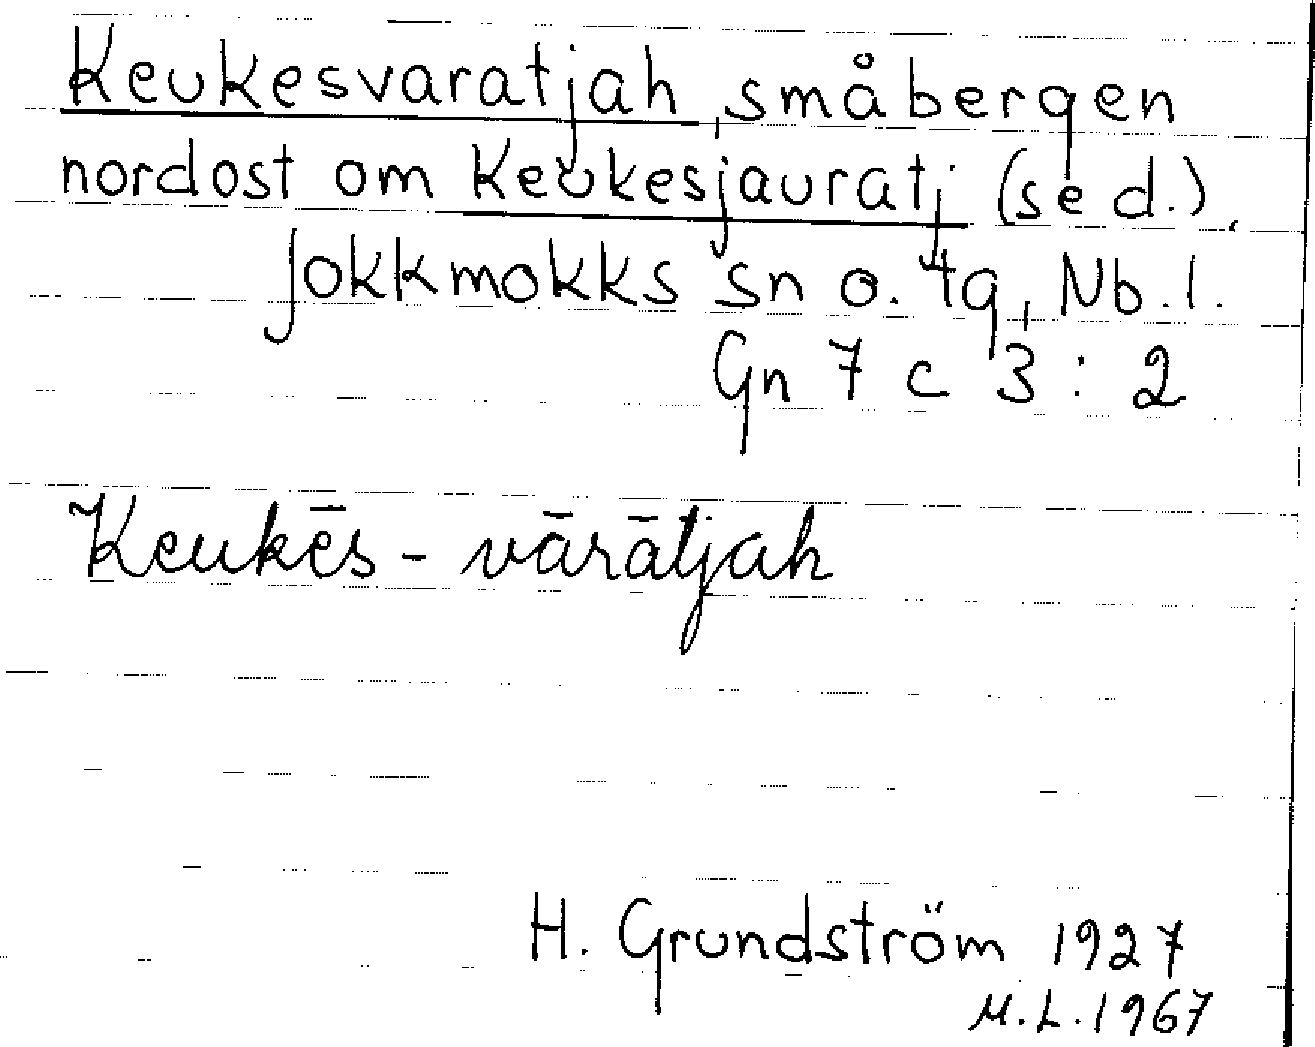 Keukesvaratjah, småbergen
nordost om Keukesjauratj (se d.),
Jokkmokks sn o. tg, Nb. l.
Gn 7 c 3 : 2
Keukēs - vārātjah
H. Grundström 1927
M.L. 1967